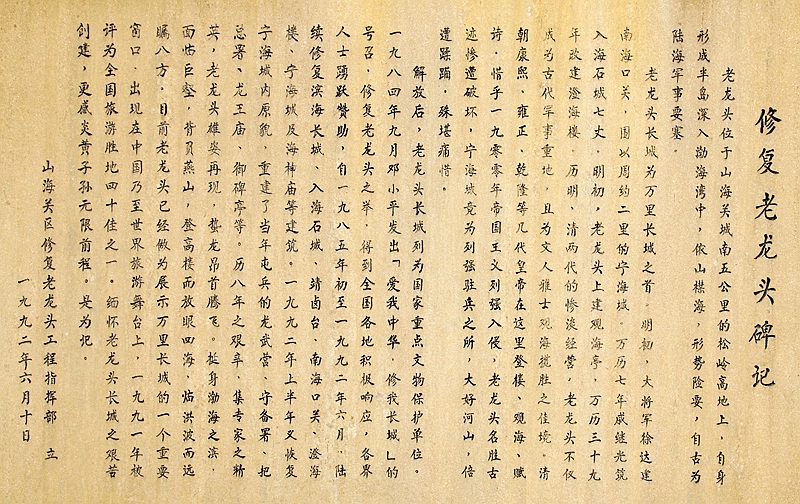 修复老龙头碑记
老龙头位于山海关城南五公里的松岭高地上，自身
形成半岛深入渤海湾中，依山襟海，形势险要，自古为
陆海军事要塞。
老龙头长城为万里长城之首。明初，大将军徐达建
南海口关，围以周约二里的宁海城。万历七年戚继光筑
入海石城七丈。明初，老龙头上建观海亭，万历三十九
年改建澄海楼。历明、清两代的惨淡经营，老龙头不仅
成为古代军事重地，且为文人雅士观海揽胜之佳境。清
朝康熙、雍正、乾隆等几代皇帝在这里登楼、观海、赋
诗。惜乎一九零零年帝国主义列强入侵，老龙头名胜古
迹惨遭破坏，宁海城竟为列强驻兵之所，大好河山，倍
遭蹂躏，殊堪痛惜。
解放后，老龙头长城列为国家重点文物保护单位。
一九八四年九月邓小平发出「爱我中华，修我长城」的
号召，修复老龙头之举，得到全国各地积极响应，各界
人士踊跃赞助，自一九八五年初至一九九二年六月，陆
续修复滨海长城、入海石城、靖卤台、南海口关、澄海
楼、宁海城及海神庙等建筑。一九九二年上半年又恢复
宁海城内原貌，重建了当年屯兵的龙武营、守备署、把
总署、龙王庙、御碑亭等。历八年之艰辛，集专家之精
英，老龙头雄姿再现，蛰龙昂首腾飞。挺身渤海之滨，
面临巨壑，背负燕山，登高楼而放眼四海，临洪波而远
瞩八方。目前老龙头已经做为展示万里长城的一个重要
窗口，出现在中国乃至世界旅游舞台上，一九九一年被
评为全国旅游胜地四十佳之一。缅怀老龙头长城之艰苦
创建，更感炎黄子孙无限前程。是为记。
山海关区修复老龙头工程指挥部 立
一九九二年六月十日